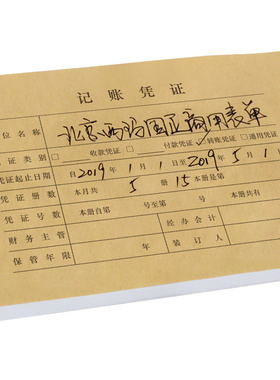 记账凭证
位名称 北京西玛国正商用表单
证类别 □ 收款凭证 □ 付款凭证 □ 转账凭证 □ 通用凭证
凭证起止日期 自2019年1月1日至2019年5月1
凭证册数 本月共 5 册 15 本册是第
凭证号数 本册自第 号至第 号 本册共有
财务主管 经办会计
保管年限 年 装订人